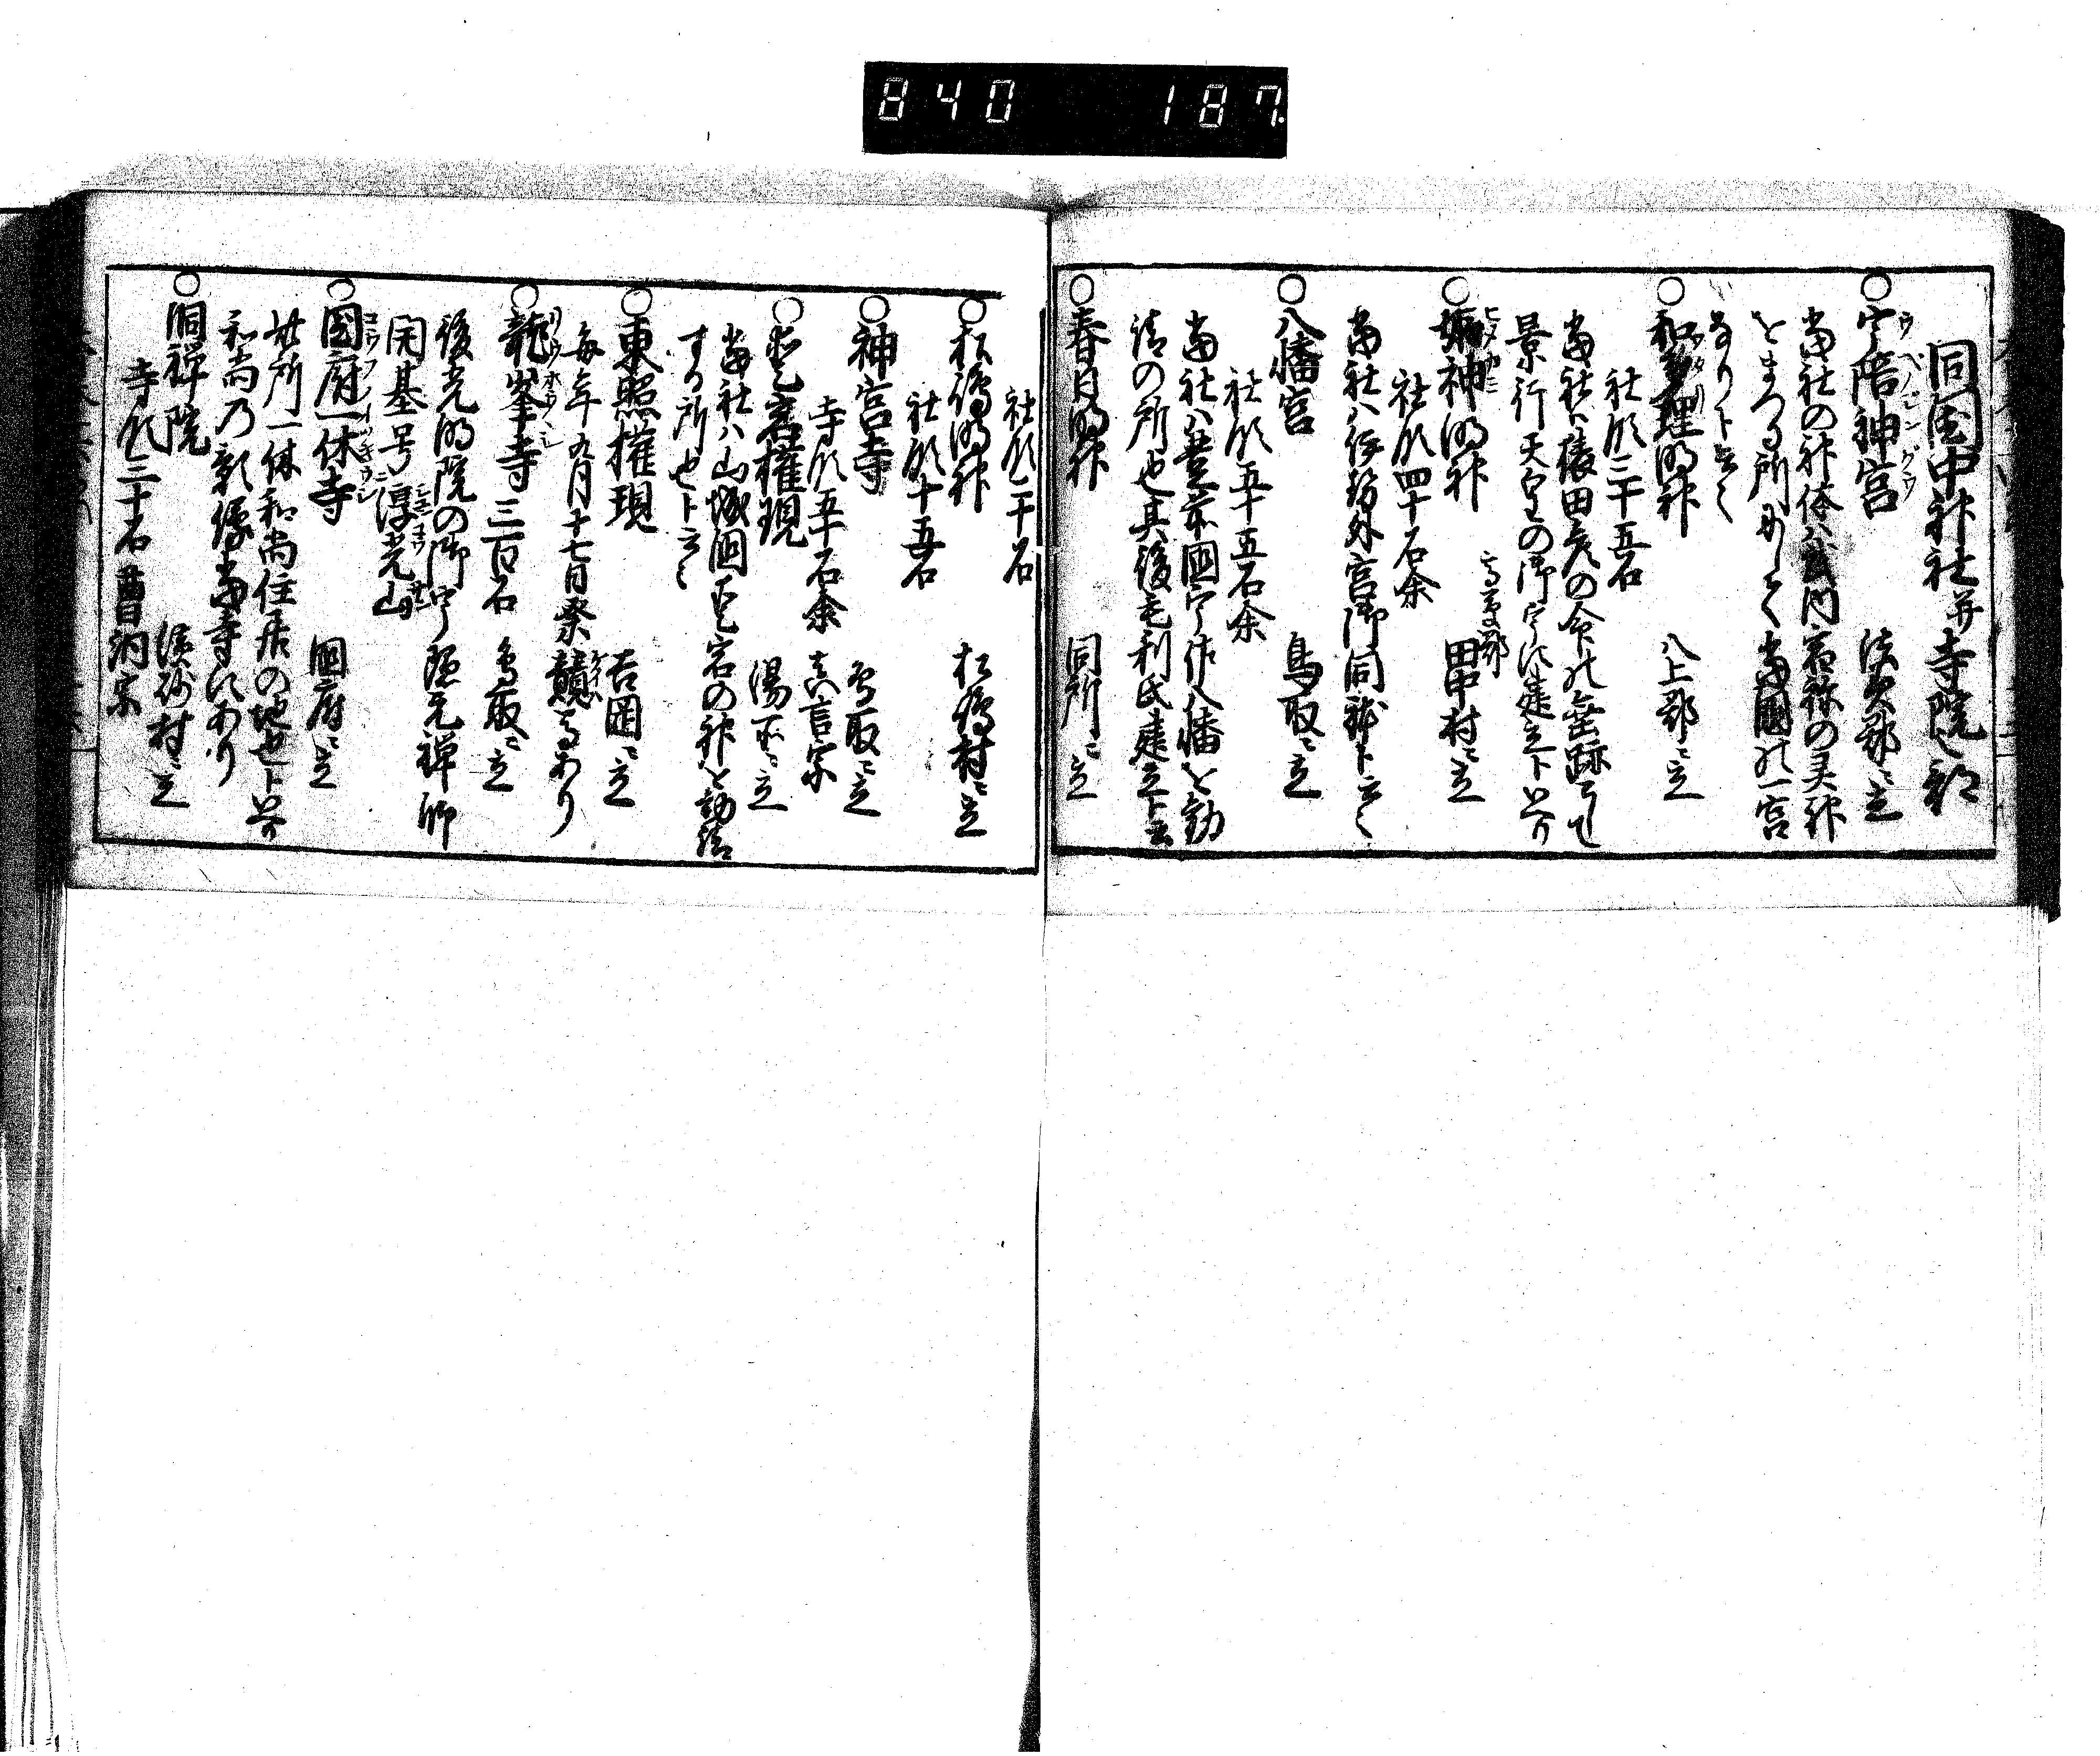 840 187
同国中神社并寺院之部
○宇陪神宮 法美郡ニ立
当社の神体ハ武内宿祢の灵神
をまつる所にして当國の一宮
なりと云々
○和多理明神 八上郡ニ立
社領二十五石
当社ハ猿田彦の命の垂跡にて
景行天皇の御宇に建立ト云
○姫神明神 田中村ニ立
社領四十石余
当社ハ伊勢外宮御同躰ト云々
○八幡宮 鳥取ニ立
社領五十五石余
当社ハ豊前國宇佐八幡を勧
請の所也其後毛利氏建立ト云
○春日明神 同所ニ立
社領二十石
○松嶋明神 松嶋村ニ立
社領十五石
○神宮寺 鳥取ニ立
寺領五十石余 真言宗
○愛宕権現 湯所ニ立
当社ハ山城國愛宕の神を勧請
する所也ト云々
○東照権現 吉岡ニ立
毎年九月十七日祭禮あり
○龍峯寺 三百石 鳥取ニ立
後光明院の御宇隠元禅師
開基号淳光山
○國府一休寺 國府ニ立
此所一休和尚住居の地也ト
和尚乃影像当寺にあり
○洞禅院 濱砂村ニ立
寺領三十石 曹洞宗